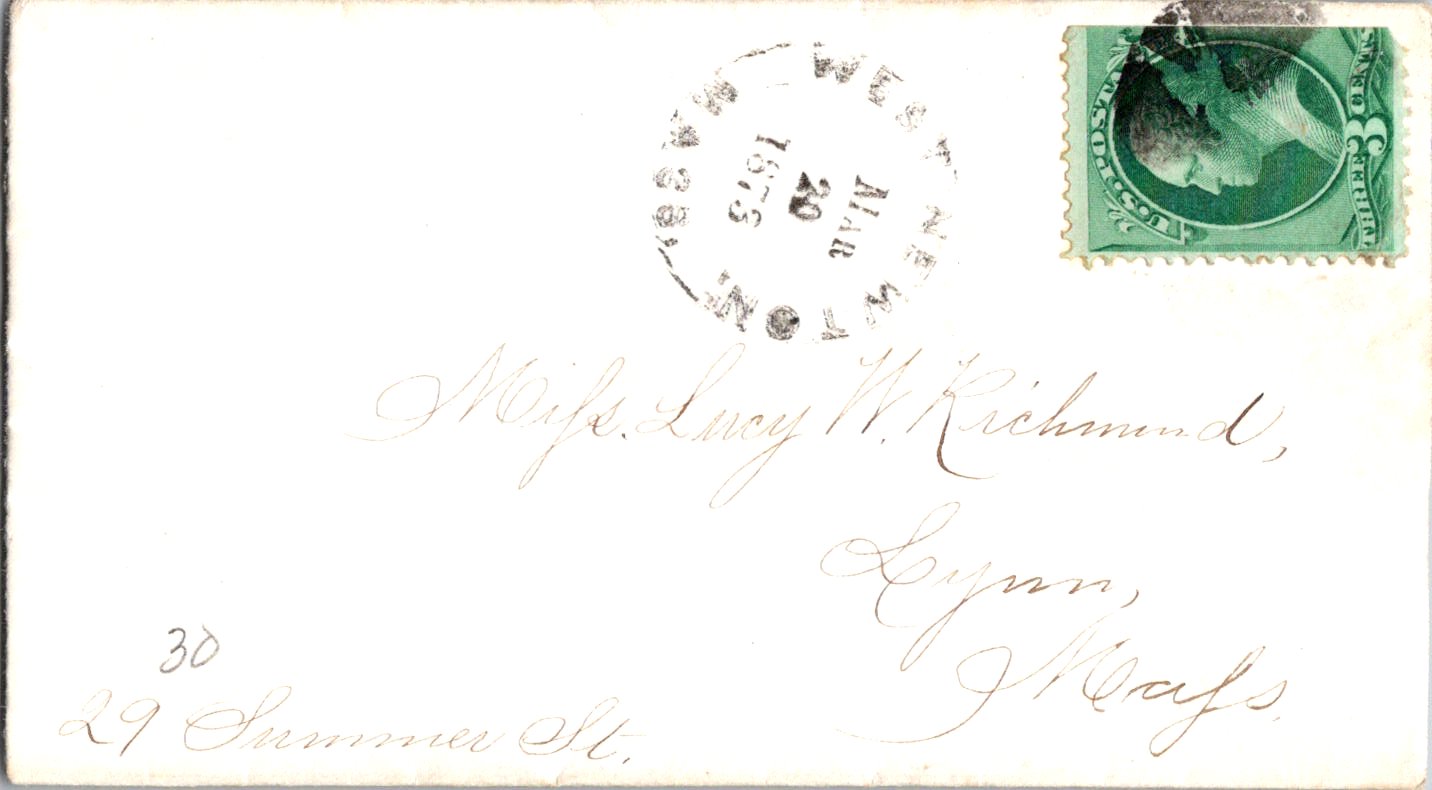 WEST NEWTON. MASS.
MAR
20
1873
U.S. POSTA
3
CENTS
Miss. Lucy W. Richmond,
Lynn,
Mass.
30
29 Summer St.